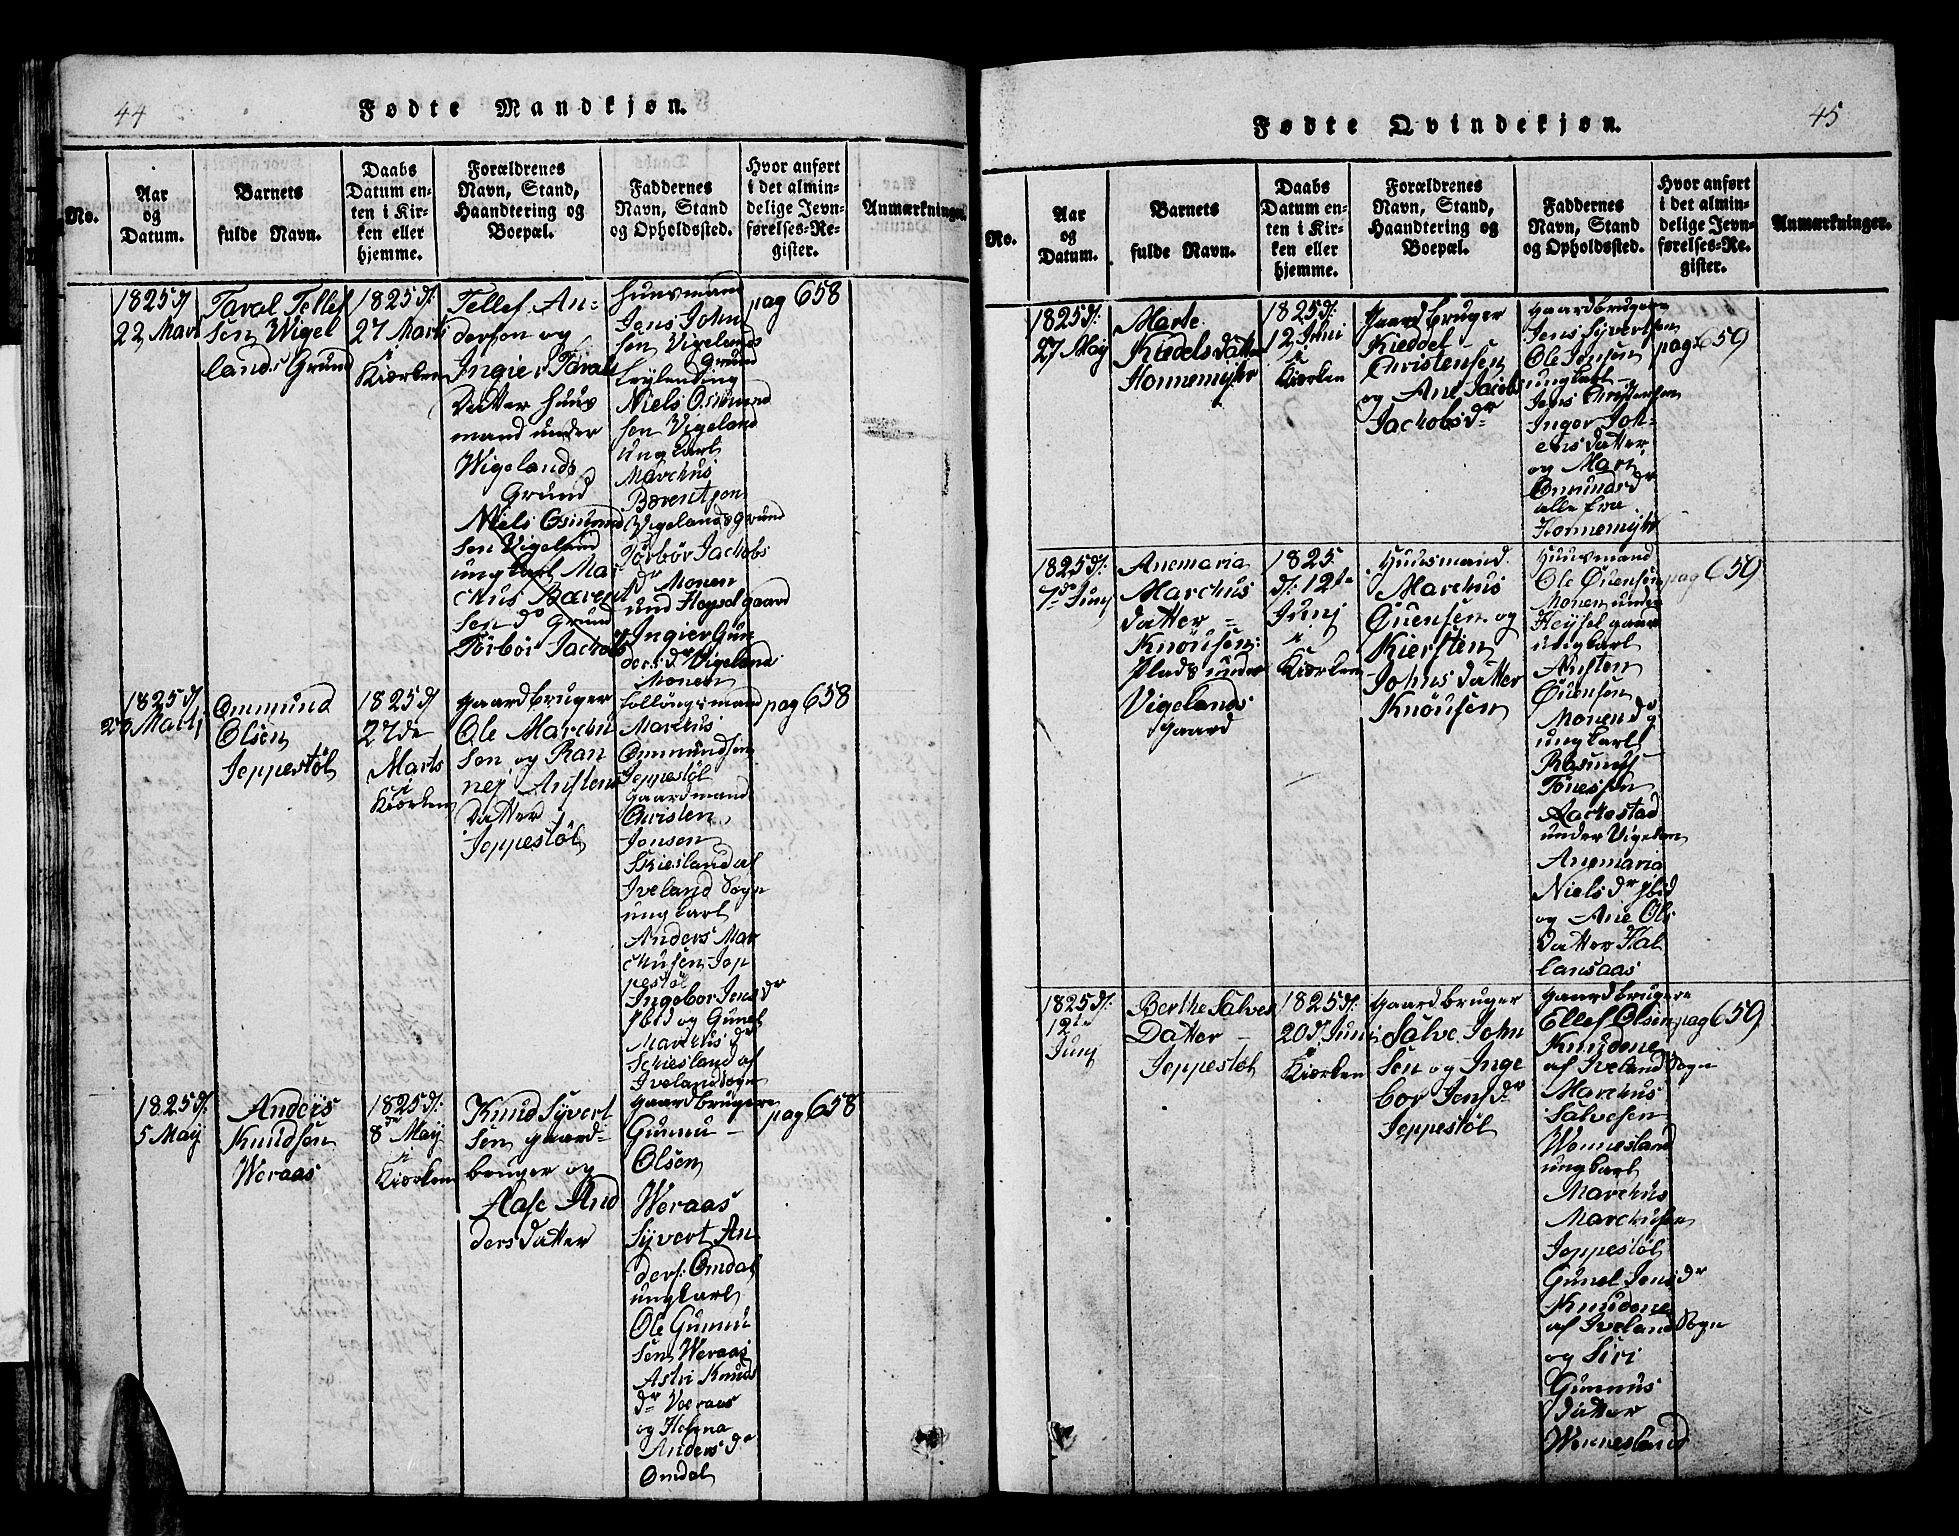 44
Fødte Mandkjøn.
No.
Aar
og
Datum.
Barnets
fulde Navn.
Daabs
Datum en-
ten i Kir-
ken eller
hjemme.
Forældrenes
Navn, Stand,
Haandtering og
Boepæl.
Faddernes
Navn, Stand
og Opholdssted.
Hvor anført
i det almin-
delige Jevn-
førelses-Re-
gister.
Anmærkninger.
1825 d
22 Mart
Taral Tellef
sen Wigel
lands Grund
1825 d:
27 Marti
i
Kiørken
Tellef An-
dersen og
Ingier Taralls
Datter huus
mand under
Wigelands
Grund
Niels Osmund
sen Vigeland
ungkarl Mar
chus Bærent
sen do Grund
Tørbør Jachobs
huusmand
Jens John
sen Vigelands
Grund
Leylending
Niels Osmund
sen Vigeland
ungkarl
Marchus
Bærentsen
Vigelandsgrund
Tørbør Jachobs
dr Monen
und Heysel gaard
og Ingier Gun
dersdr Vigeland
Monen
pag 658
1825 d
23 Martj
Ommund
Olsen
Jeppestøl
1825 d
27de
Marts
i
Kiørken
gaardbruger
Ole Marchu
sen og Ran
nej Anstens
datter
Jeppestøl
Følløngsmand
Marchus
Ommundsen
Jeppestøl
gaardmand
Christen
Jonsen
Skiesland af
Iveland Sogn
ungkarl
Anders Mar
chusen Jep
pestøl
Ingebor Jensdr
ibid og Gunel
Marchusdr
Schiesland af
Ivelandsogn
pag 658
1825 d:
5 May
Anders
Knudsen
Weraas
1825 d:
8de May
i
Kiørken
Knud Syvert
sen gaard-
bruger og
Aase And
dersdatter
gaardbrugere
Gunnu-
Olsen
Weraas
Syvert An
ders: Omdal
ungkarl
Ole Gunnu
sen Weraas
Astri Knuds
dr Veraas
og Helena
Andersdr
Omdal
pag 658
45
Fødte Qvindekjøn.
No.
Aar
og
Datum.
Barnets
fulde Navn.
Daabs
Datum en-
ten i Kir-
ken eller
hjemme.
Forældrenes
Navn, Stand,
Haandtering og
Boepæl.
Faddernes
Navn, Stand
og Opholdssted.
Hvor anført
i det almin-
delige Jevn-
førelses-Re-
gister.
Anmærkninger.
1825 d:
27 May
Marte
Kiedelsdatter
Honnemyhr
1825 d:
12 Juni
i
Kiørken
gaardbruger
Kieddel
Christensen
og Ane Jacobs
Jachobsdr
gaardbrugere
Jens Syvertsen
Ole Jensen
ungkarl
Jens Christensen
Inger Joh-
ensdatter
og Mari
Omundsdr
alle fra
Honnemyhr
pag: 659
1825 d:
7de Junj
Anemaria
Marchus
datter =
Knøusen:
Plads under
Vigelands
gaard
1825
d: 12te
Junj
i
Kiørken
Huusmand
Marchus
Øuensen og
Kiersten
Johnsdatter
Knøusen
Huusmand
Ole Øuensen
Monen under
Heysel gaard
ungkarl
Ansten
Øuensen
Monen do
ungkarl
Rasmus
Tønessen
Aachestad
under Vigeland
Anemaria
Nielsdr ibid
og Ane Ols
datter Hal
lansaas
pag 659
1825 d:
12te
Junj
Berthe Salves
Datter -
Jeppestøl
1825 d:
20 d: Juni
i
Kiørken
gaardbruger
Salve John
sen og Inge
bor Jensdr
Jeppestøl
gaardbrugere
Ellef Olsen
Knudene
af Iveland Sogn
Marchus
Salvesen
Wennesland
ungkarl
Marchus
Marchusen
Jeppestøl
Gunel Jensdr
Knudene
af Iveland Sogn
og Siri
Gunnus
datter
Wennesland
pag 659